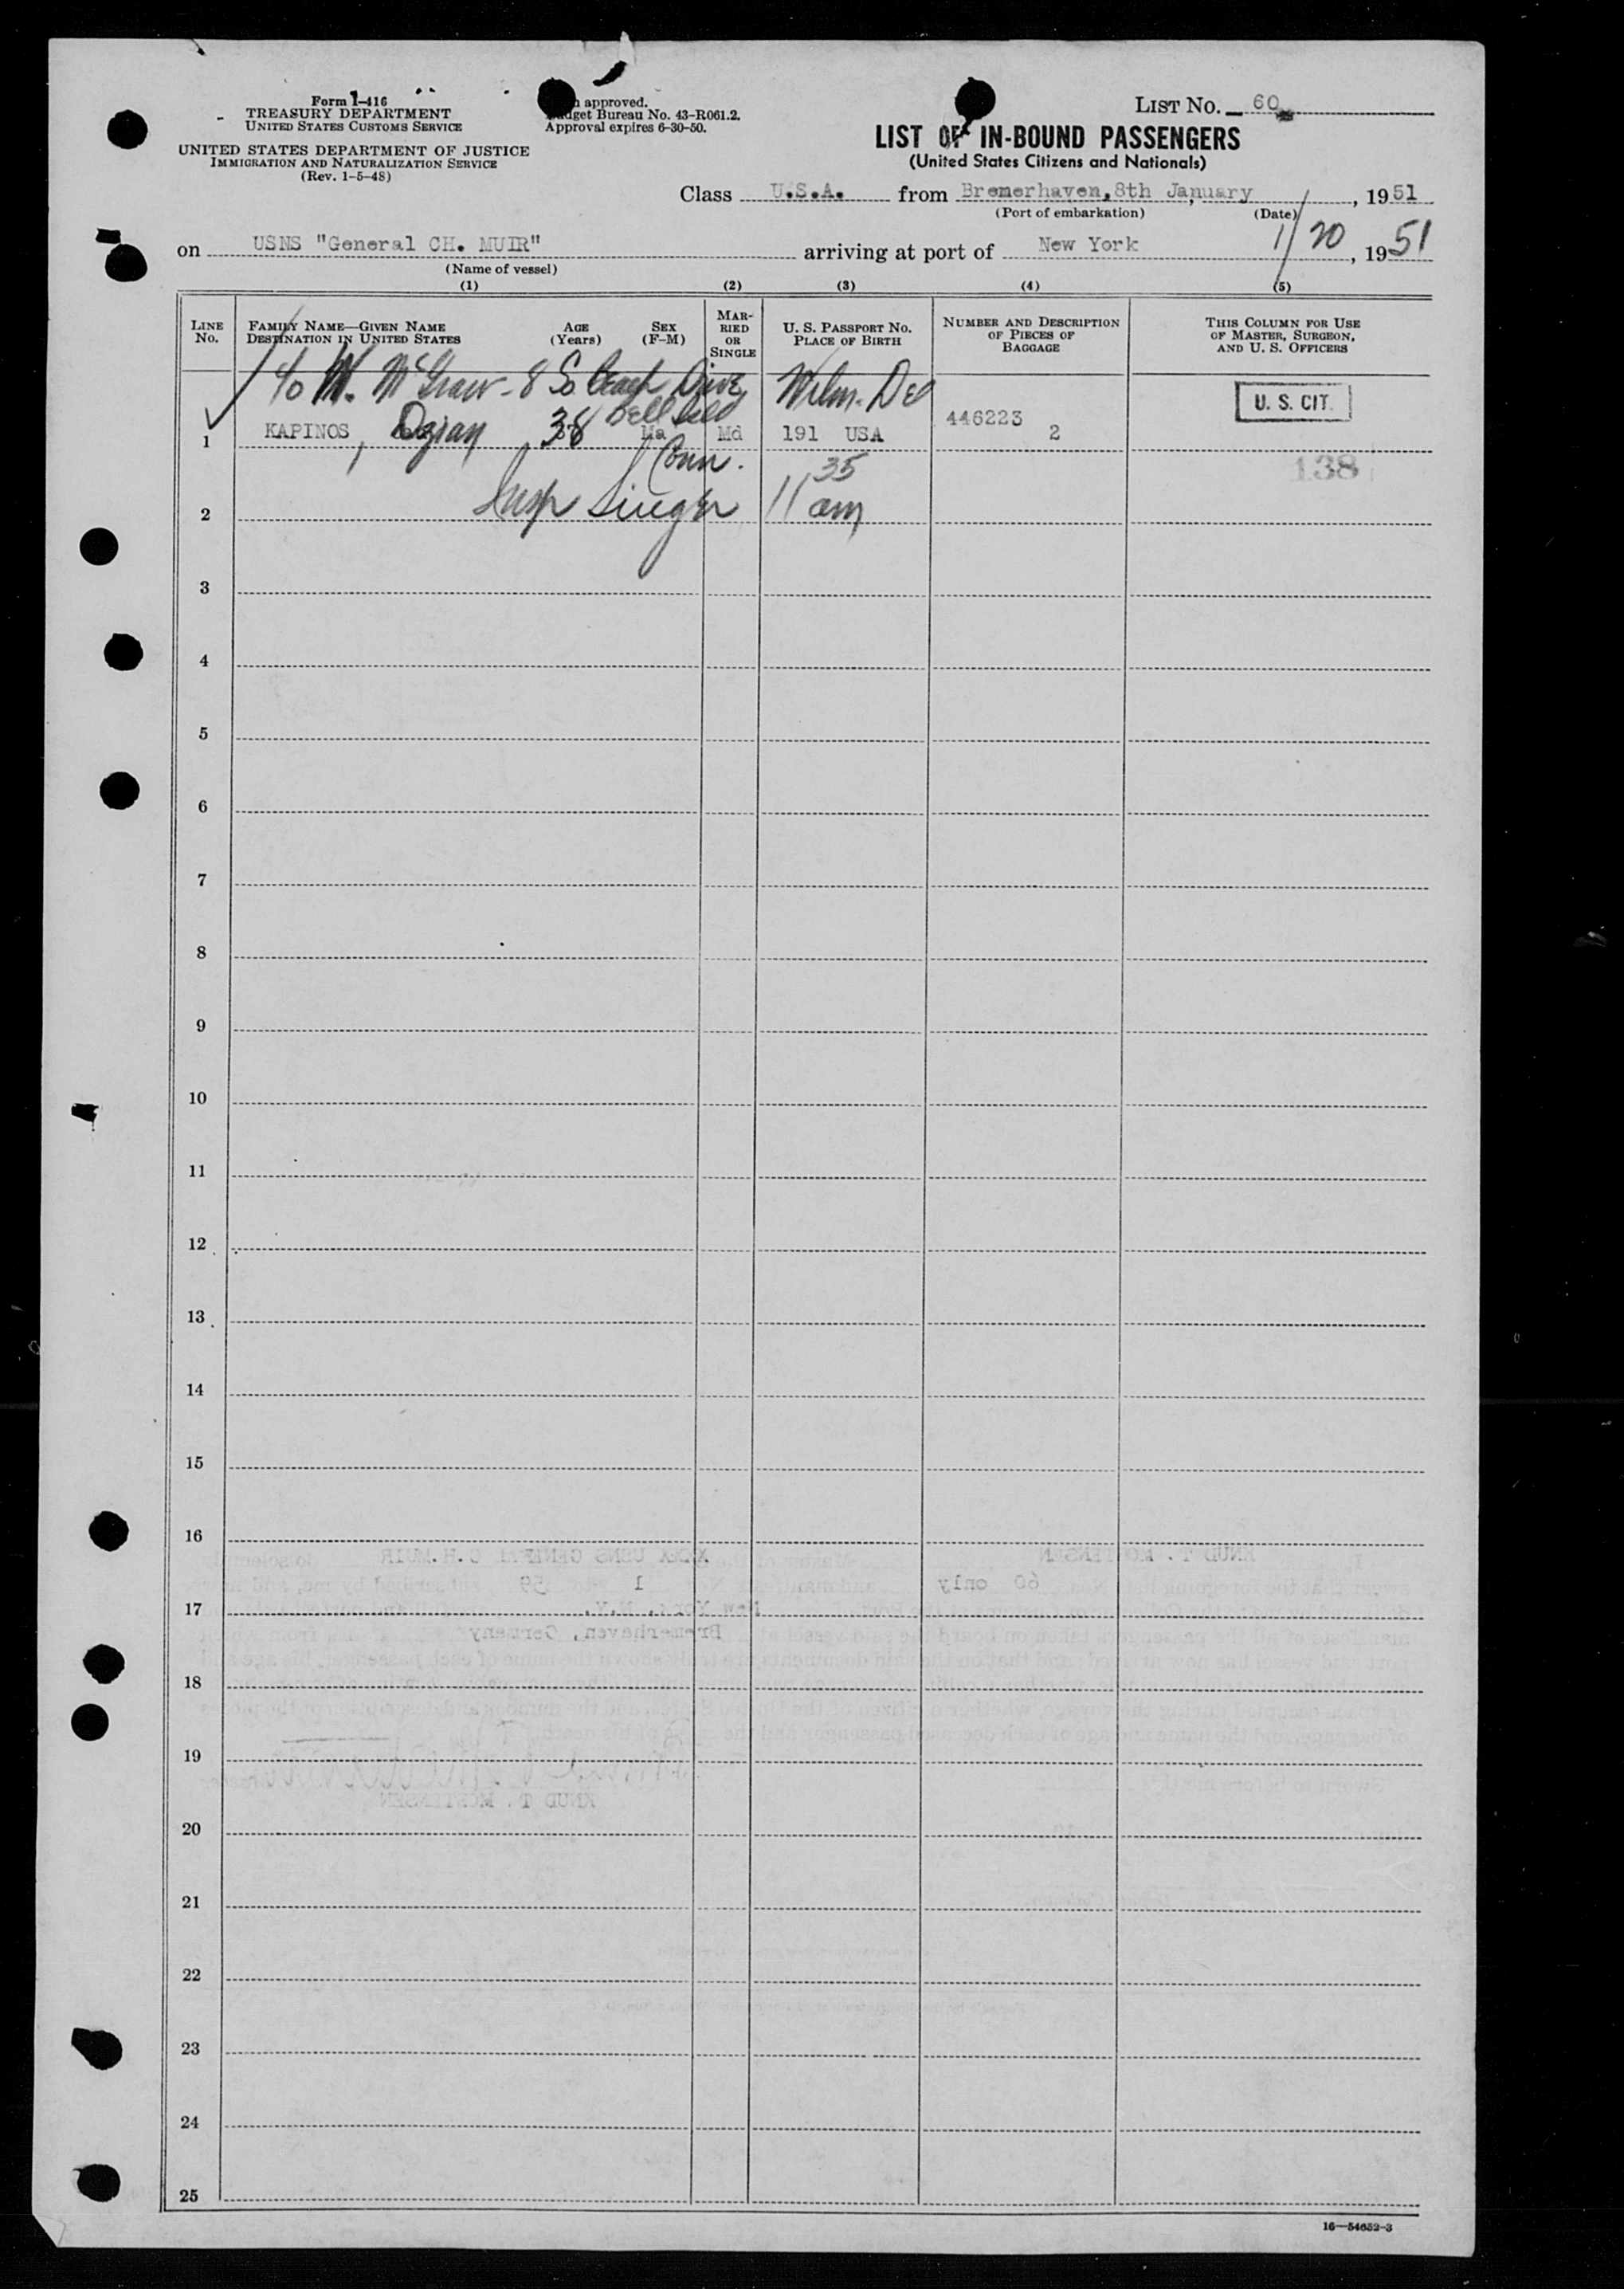 Form I-416
TREASURY DEPARTMENT
UNITED STATES CUSTOMS SERVICE
UNITED STATES DEPARTMENT OF JUSTICE
IMMIGRATION AND NATURALIZATION SERVICE
(Rev. 1-5-48)
approved.
Budget Bureau No. 43-R061.2.
Approval expires 6-30-50.
LIST NO. 60
LIST OF IN-BOUND PASSENGERS
(United States Citizens and Nationals)
Class U.S.A. from Bremerhaven, 8th January, 1951
(Port of embarkation) (Date)
on USNS "General CH. MUIR" arriving at port of New York 1/20, 1951
(Name of vessel)
(1) (2) (3) (4) (5)
LINE NO.
FAMILY NAME—GIVEN NAME
DESTINATION IN UNITED STATES
AGE (Years)
SEX (F-M)
MARRIED OR SINGLE
U. S. PASSPORT NO.
PLACE OF BIRTH
NUMBER AND DESCRIPTION OF PIECES OF BAGGAGE
THIS COLUMN FOR USE OF MASTER, SURGEON, AND U. S. OFFICERS
c/o McGraw - 8 So Beach Drive Wilm. Del
U. S. CIT.
1 KAPINOS, 38 Ma Md 191 USA 446223 2
Conn. 138
2 Insp Singer 11 35 am
3
4
5
6
7
8
9
10
11
12
13
14
15
16
KNUD T. MORTENSEN USNS GENERAL C.H.MUIR
60 only 1 59
17
New York, N.Y.
Bremerhaven, Germany
18
19
KNUD T. MORTENSEN
20
21
22
23
24
25
16—54652-3